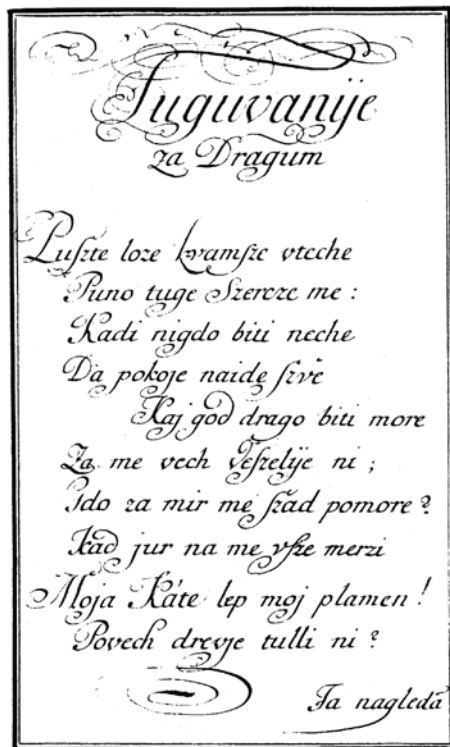 Tuguvanije
za Dragum
Puſzte loze kvamſze vteche
Puno tuge Szercze me :
Kadi nigdo biti neche
Da pokoje naide ſzve
Kaj god drago biti more
Za me vech Veſzelije ni ;
Gdo za mir me ſzad pomore ?
kad jur na me vſze merzi
Moja Káte lep moj plamen !
Povech drevje tulli ni ?
Ja nagleda